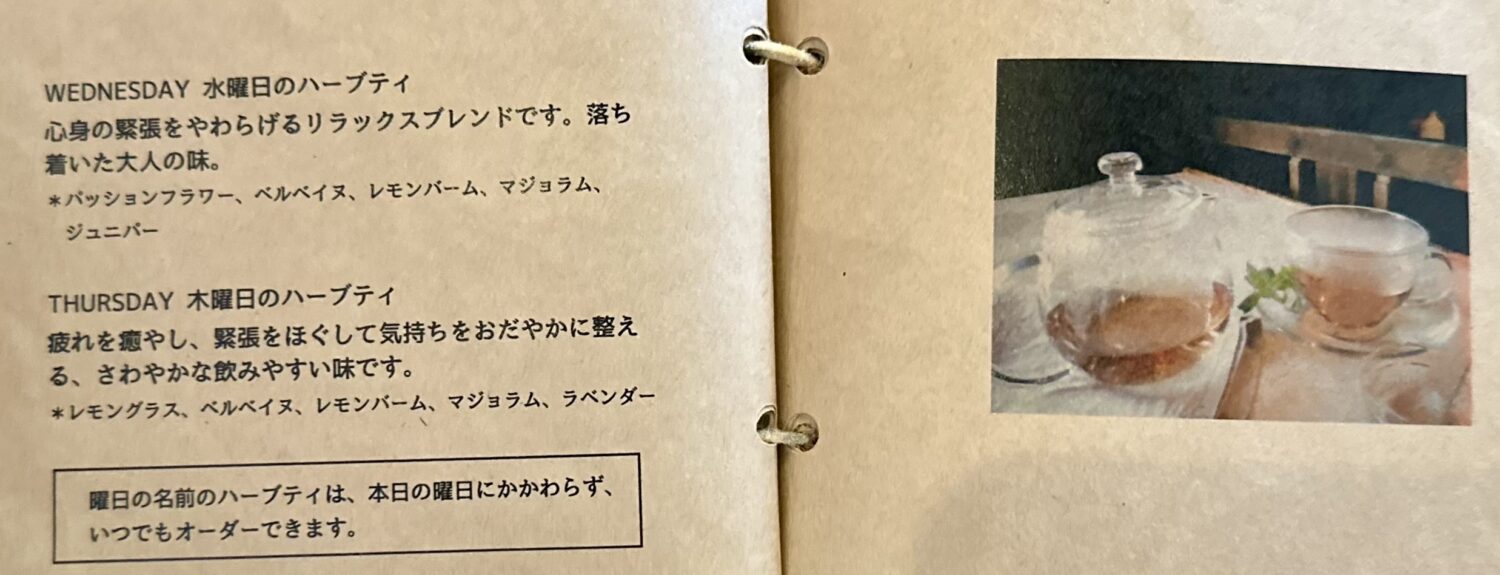 WEDNESDAY 水曜日のハーブティ
心身の緊張をやわらげるリラックスブレンドです。落ち
着いた大人の味。
＊パッションフラワー、ベルベイヌ、レモンバーム、マジョラム、
ジュニパー
THURSDAY 木曜日のハーブティ
疲れを癒やし、緊張をほぐして気持ちをおだやかに整え
る、さわやかな飲みやすい味です。
＊レモングラス、ベルベイヌ、レモンバーム、マジョラム、ラベンダー
曜日の名前のハーブティは、本日の曜日にかかわらず、
いつでもオーダーできます。